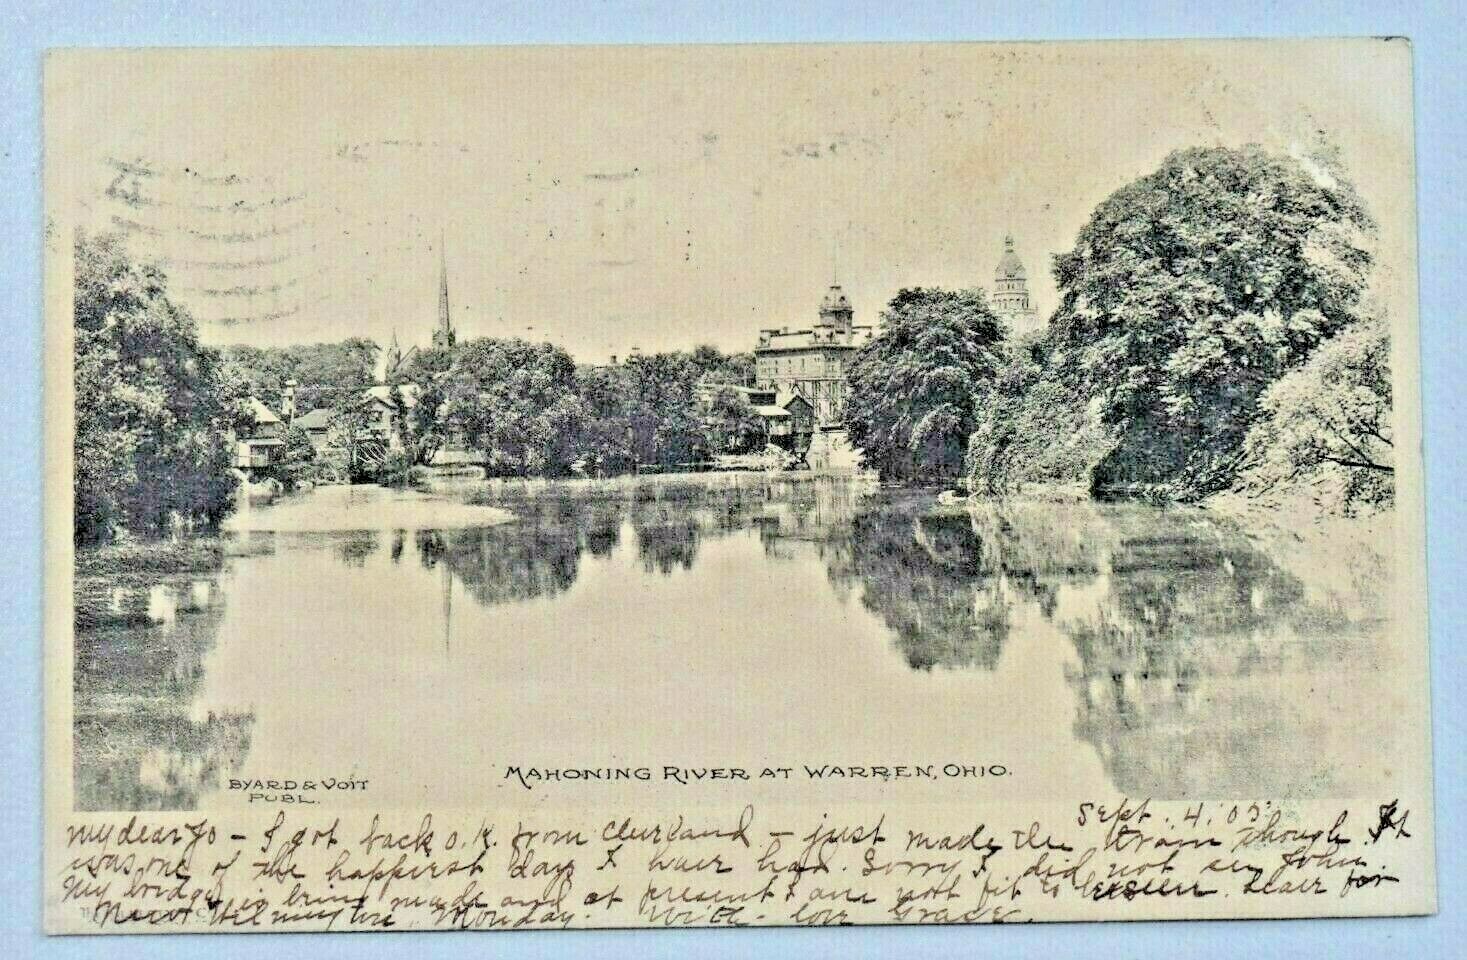 BYARD & VOIT
PUBL.
MAHONING RIVER AT WARREN, OHIO.
Sept. 4. 05
my dear Jo - I got back o.K. from Cleveland - just made the train though. It
was one of the happiest days I have had. Sorry I did not see John.
My bridge is being made and at present I am not fit to be seen. Leave for
New Wilmington, Monday. With love Grace.